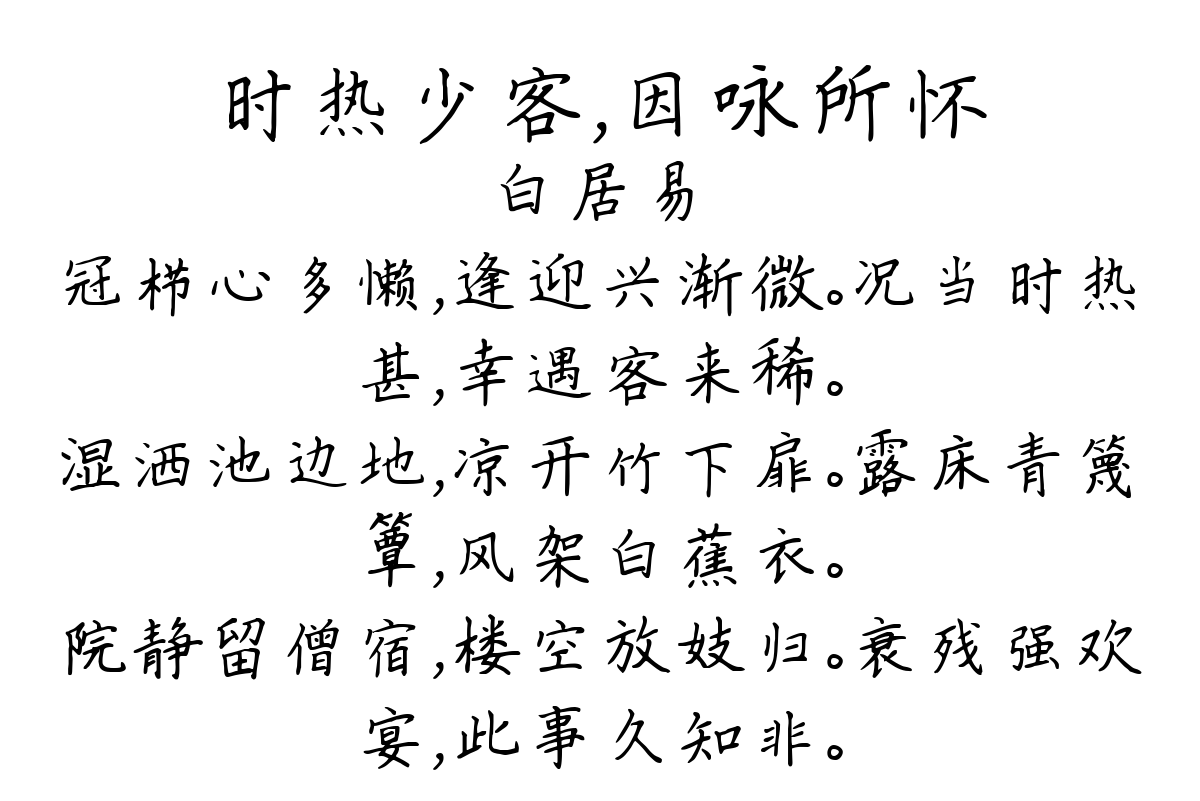 时热少客,因咏所怀
白居易
冠栉心多懒,逢迎兴渐微。况当时热
甚,幸遇客来稀。
湿洒池边地,凉开竹下扉。露床青篾
簟,风架白蕉衣。
院静留僧宿,楼空放妓归。衰残强欢
宴,此事久知非。